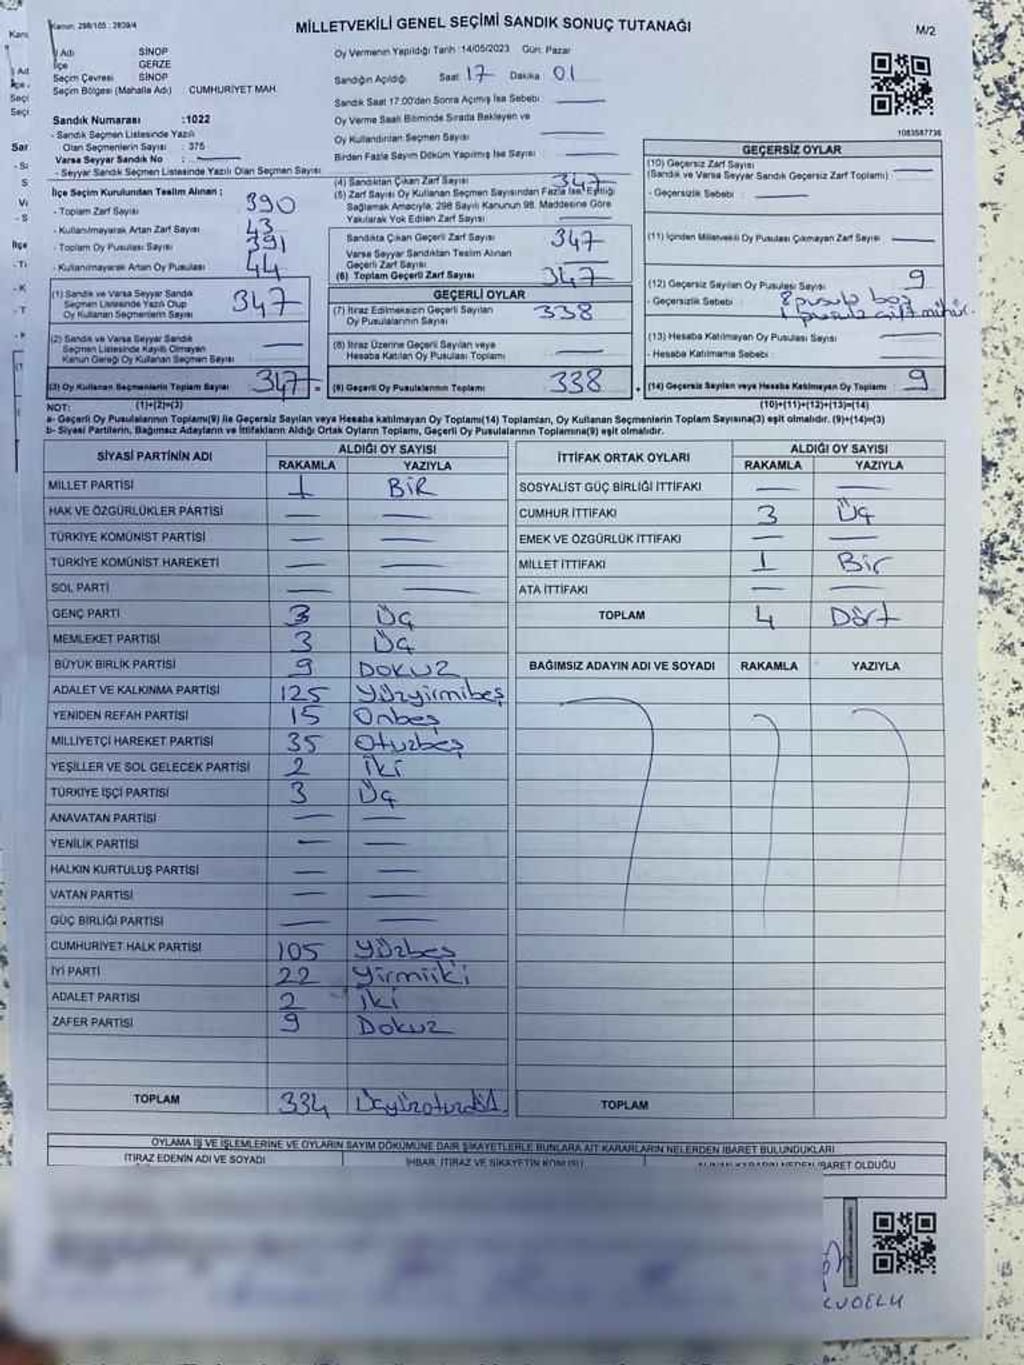 Kanun: 298/105 : 2839/4
MİLLETVEKİLİ GENEL SEÇİMİ SANDIK SONUÇ TUTANAĞI
M/2
Adı SİNOP
İlçe GERZE
Seçim Çevresi SİNOP
Seçim Bölgesi (Mahalle Adı) CUMHURİYET MAH.
Oy Vermenin Yapıldığı Tarih :14/05/2023 Gün: Pazar
Sandığın Açıldığı Saat 17 Dakika 01
Sandık Saat 17:00'den Sonra Açılmış İse Sebebi
Oy Verme Saati Bitiminde Sırada Bekleyen ve
Oy Kullandırılan Seçmen Sayısı
Birden Fazla Sayım Döküm Yapılmış İse Sayısı
1083587736
Sandık Numarası :1022
- Sandık Seçmen Listesinde Yazılı
Olan Seçmenlerin Sayısı : 375
Varsa Seyyar Sandık No :
- Seyyar Sandık Seçmen Listesinde Yazılı Olan Seçmen Sayısı
İlçe Seçim Kurulundan Teslim Alınan :
- Toplam Zarf Sayısı 390
- Kullanılmayarak Artan Zarf Sayısı 43
- Toplam Oy Pusulası Sayısı 391
- Kullanılmayarak Artan Oy Pusulası 44
(1) Sandık ve Varsa Seyyar Sandık
Seçmen Listesinde Yazılı Olup
Oy Kullanan Seçmenlerin Sayısı 347
(2) Sandık ve Varsa Seyyar Sandık
Seçmen Listesinde Kayıtlı Olmayan
Kanun Gereği Oy Kullanan Seçmen Sayısı
(3) Oy Kullanan Seçmenlerin Toplam Sayısı 347
(1)+(2)=(3)
(4) Sandıktan Çıkan Zarf Sayısı 347
(5) Zarf Sayısı Oy Kullanan Seçmen Sayısından Fazla İse, Eşitliği
Sağlamak Amacıyla, 298 Sayılı Kanunun 98. Maddesine Göre
Yakılarak Yok Edilen Zarf Sayısı
Sandıkta Çıkan Geçerli Zarf Sayısı 347
Varsa Seyyar Sandıktan Teslim Alınan
Geçerli Zarf Sayısı
(6) Toplam Geçerli Zarf Sayısı 347
GEÇERLİ OYLAR
(7) İtiraz Edilmeksizin Geçerli Sayılan
Oy Pusulalarının Sayısı 338
(8) İtiraz Üzerine Geçerli Sayılan veya
Hesaba Katılan Oy Pusulası Toplamı
(9) Geçerli Oy Pusulalarının Toplamı 338
GEÇERSİZ OYLAR
(10) Geçersiz Zarf Sayısı
(Sandık ve Varsa Seyyar Sandık Geçersiz Zarf Toplamı)
- Geçersizlik Sebebi :
(11) İçinden Milletvekili Oy Pusulası Çıkmayan Zarf Sayısı
(12) Geçersiz Sayılan Oy Pusulası Sayısı 9
- Geçersizlik Sebebi : 8 pusula boş
1 pusula çift mühür.
(13) Hesaba Katılmayan Oy Pusulası Sayısı
- Hesaba Katılmama Sebebi :
(14) Geçersiz Sayılan veya Hesaba Katılmayan Oy Toplamı 9
(10)+(11)+(12)+(13)=(14)
NOT:
a- Geçerli Oy Pusulalarının Toplamı(9) ile Geçersiz Sayılan veya Hesaba katılmayan Oy Toplamı(14) Toplamları, Oy Kullanan Seçmenlerin Toplam Sayısına(3) eşit olmalıdır. (9)+(14)=(3)
b- Siyasi Partilerin, Bağımsız Adayların ve İttifakların Aldığı Ortak Oyların Toplamı, Geçerli Oy Pusulalarının Toplamına(9) eşit olmalıdır.
SİYASİ PARTİNİN ADI ALDIĞI OY SAYISI
RAKAMLA YAZIYLA
MİLLET PARTİSİ 1 BİR
HAK VE ÖZGÜRLÜKLER PARTİSİ
TÜRKİYE KOMÜNİST PARTİSİ
TÜRKİYE KOMÜNİST HAREKETİ
SOL PARTİ
GENÇ PARTİ 3 Üç
MEMLEKET PARTİSİ 3 Üç
BÜYÜK BİRLİK PARTİSİ 9 DOKUZ
ADALET VE KALKINMA PARTİSİ 125 Yüzyirmibeş
YENİDEN REFAH PARTİSİ 15 Onbeş
MİLLİYETÇİ HAREKET PARTİSİ 35 Otuzbeş
YEŞİLLER VE SOL GELECEK PARTİSİ 2 İki
TÜRKİYE İŞÇİ PARTİSİ 3 Üç
ANAVATAN PARTİSİ
YENİLİK PARTİSİ
HALKIN KURTULUŞ PARTİSİ
VATAN PARTİSİ
GÜÇ BİRLİĞİ PARTİSİ
CUMHURİYET HALK PARTİSİ 105 Yüzbeş
İYİ PARTİ 22 Yirmiiki
ADALET PARTİSİ 2 İki
ZAFER PARTİSİ 9 Dokuz
TOPLAM 334 Üçyüzotuzdört
İTTİFAK ORTAK OYLARI ALDIĞI OY SAYISI
RAKAMLA YAZIYLA
SOSYALİST GÜÇ BİRLİĞİ İTTİFAKI
CUMHUR İTTİFAKI 3 Üç
EMEK VE ÖZGÜRLÜK İTTİFAKI
MİLLET İTTİFAKI 1 Bir
ATA İTTİFAKI
TOPLAM 4 Dört
BAĞIMSIZ ADAYIN ADI VE SOYADI RAKAMLA YAZIYLA
TOPLAM
OYLAMA İŞ VE İŞLEMLERİNE VE OYLARIN SAYIM DÖKÜMÜNE DAİR ŞİKAYETLERLE BUNLARA AİT KARARLARIN NELERDEN İBARET BULUNDUKLARI
İTİRAZ EDENİN ADI VE SOYADI
İHBAR, İTİRAZ VE ŞİKAYETİN KONUSU
İBARET OLDUĞU